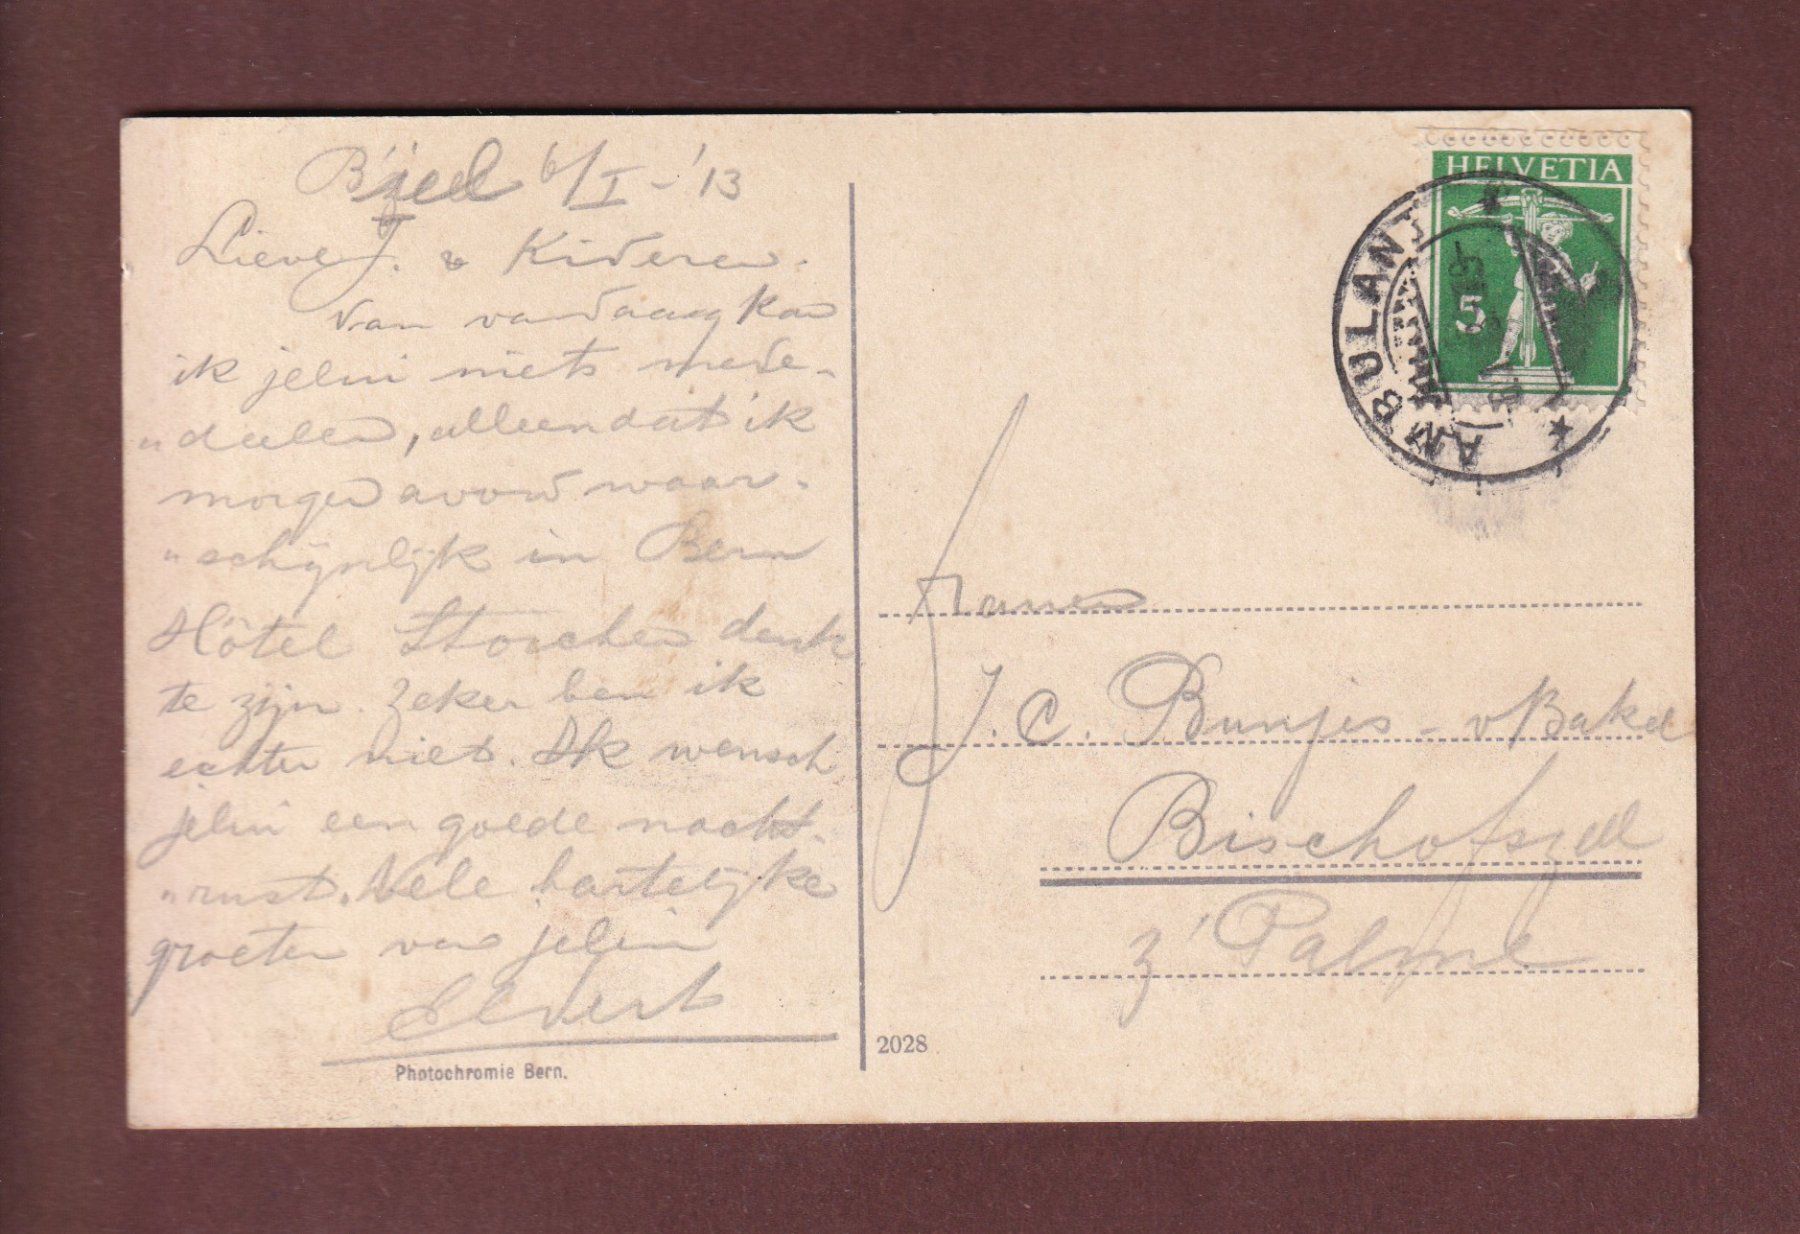 6/I - '13
Lieve J. & Kinderen.
Van vandaag kan
ik jelui niets mede-
„deelen, alleen dat ik
morgen avond waar-
„schijnlijk in Bern
Hôtel Storchen denk
te zijn. Zeker ben ik
echter niet. Ik wensch
jelui een goede nacht-
„rust. Vele hartelijke
groeten van jelui
Photochromie Bern.
2028
HELVETIA
5
AMBULANT
J. C. Bunjes - v Bakel
Bischofszell
z' Palme